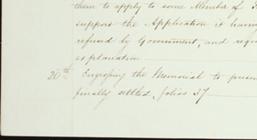 them to apply to some Member of
support the Application it having
refused by Government, and requ
explanation
20th Engrossing the Memorial to
finally settled, folios 37